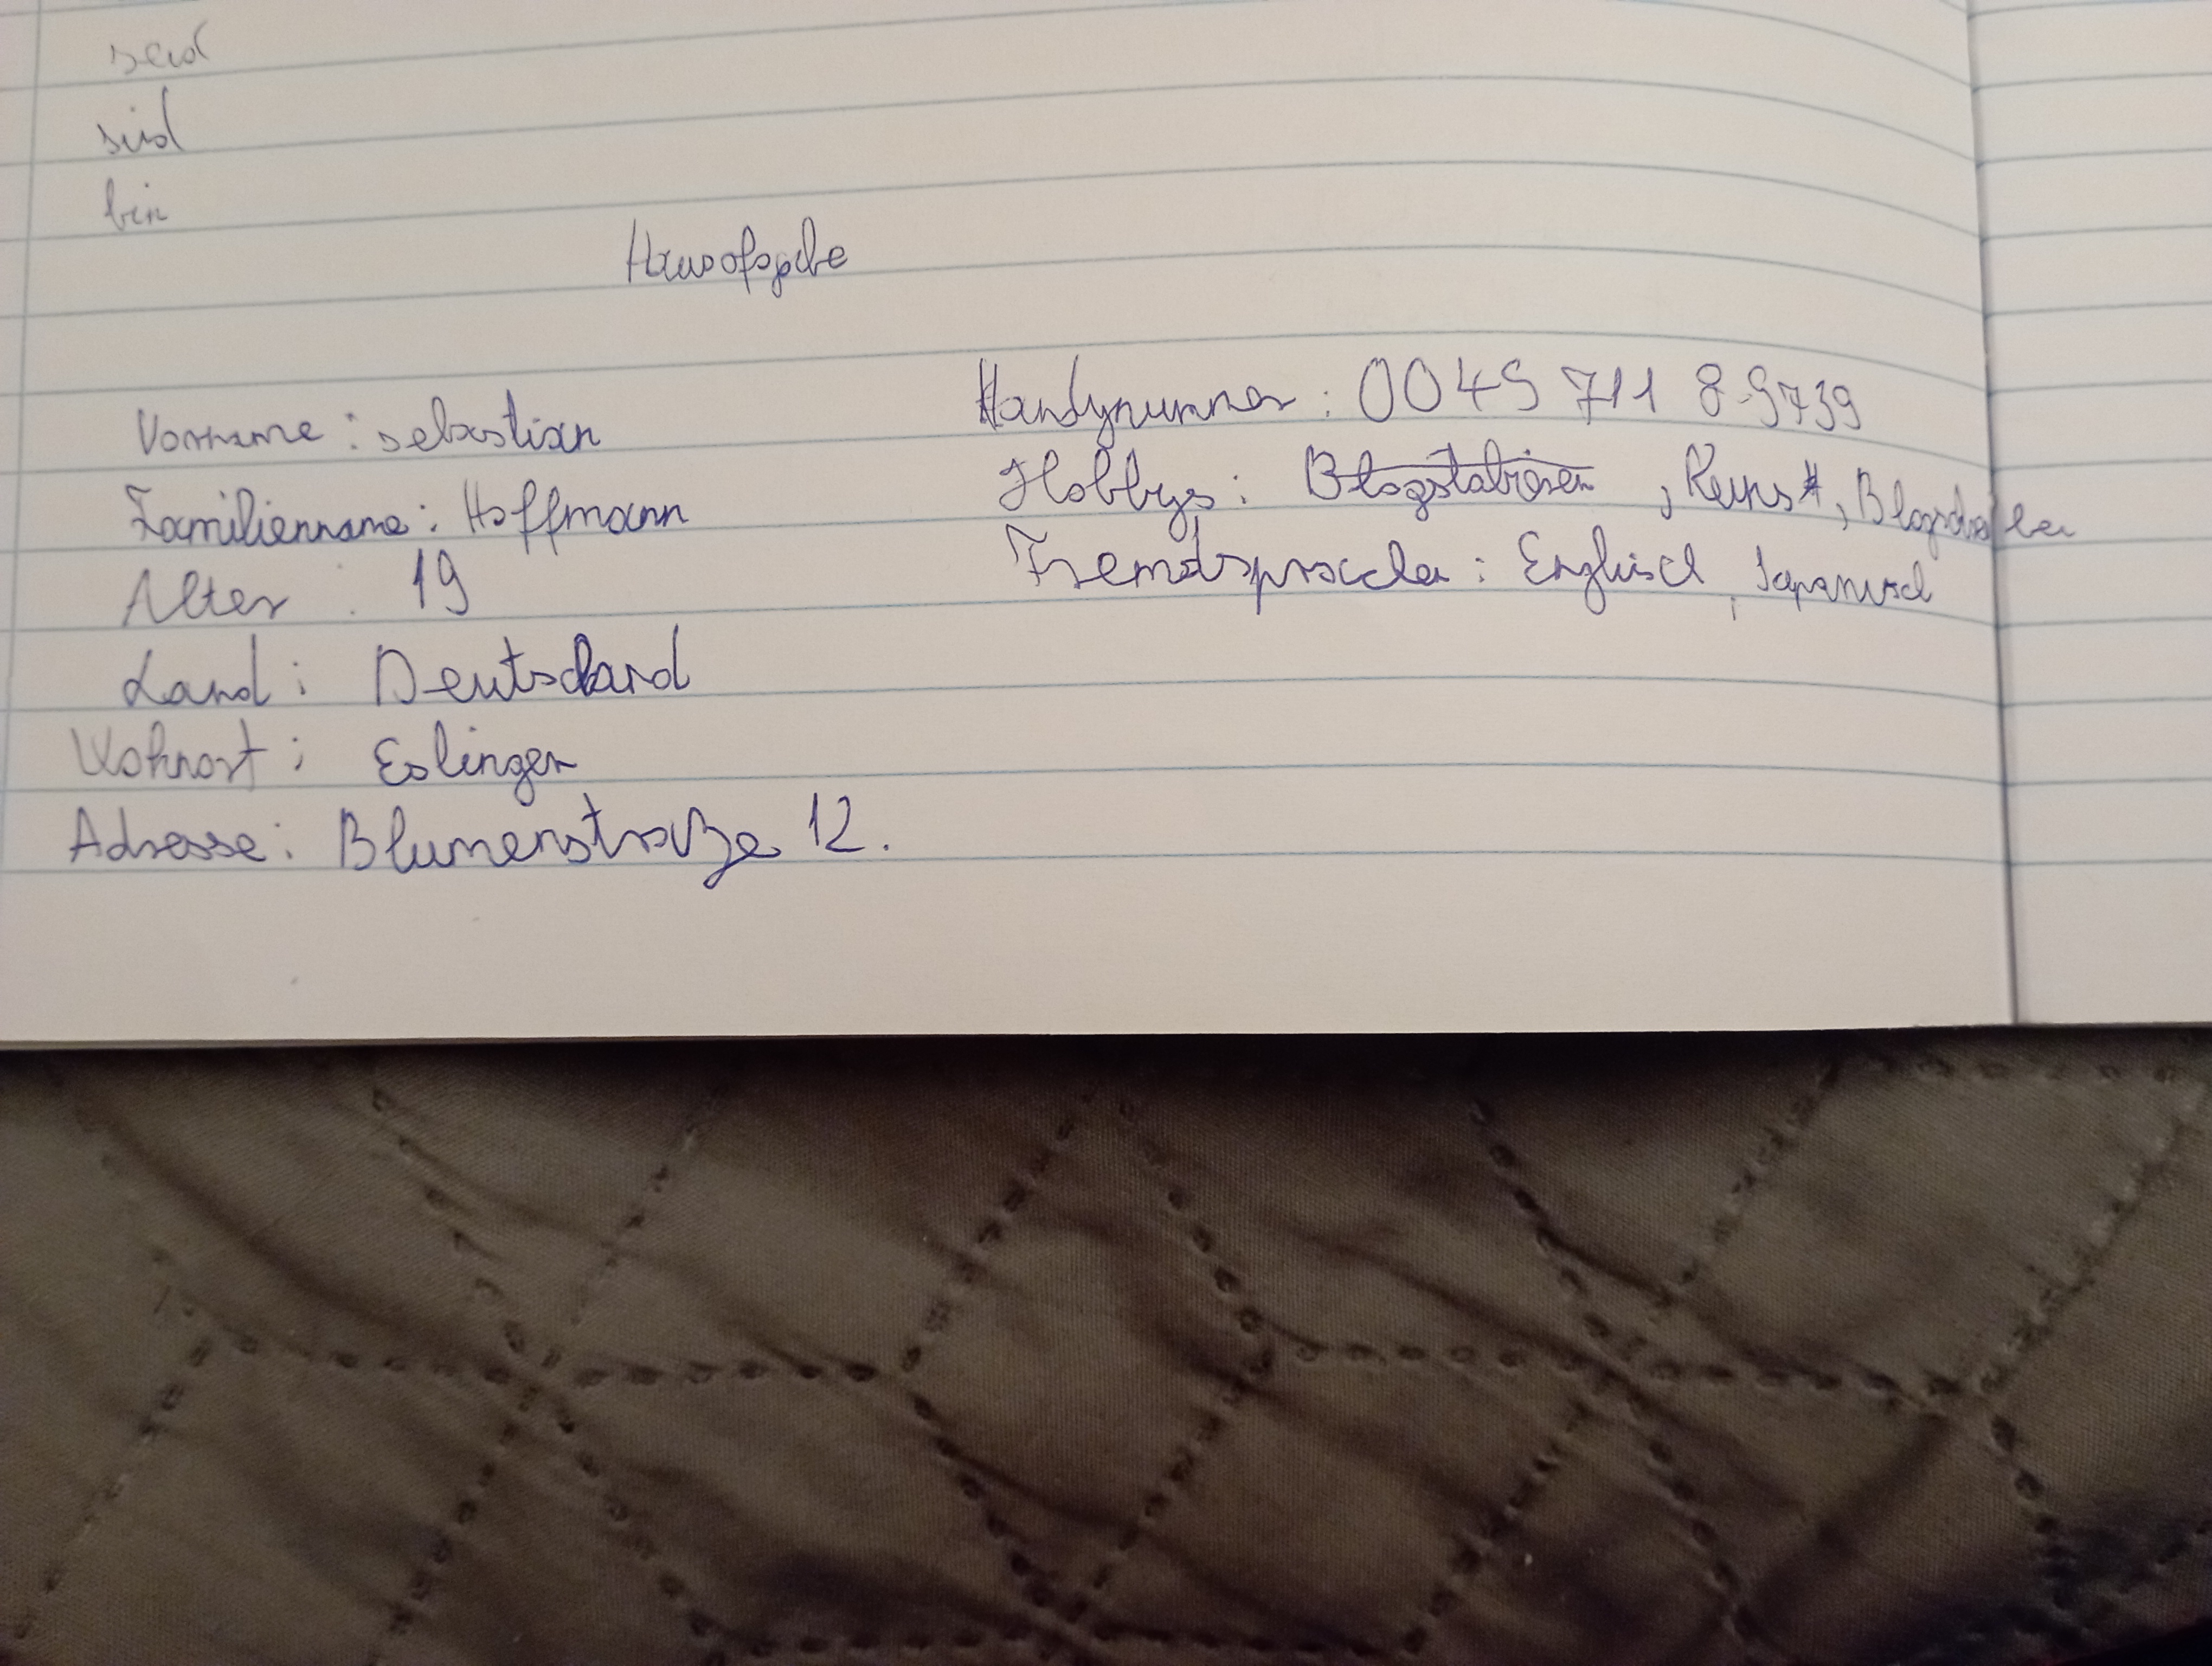 seid
sind
bin
Hausofgabe
Vorname : sebastian
Familienname : Hoffmann
Alter : 19
Land : Deutschland
Wohnort : Eslingen
Adresse : Blumenstraße 12.
Handynummer : 0049 711 8-9739
Hobbys : , Kunst,
Fremdsprachen : Englisch, Japanisch